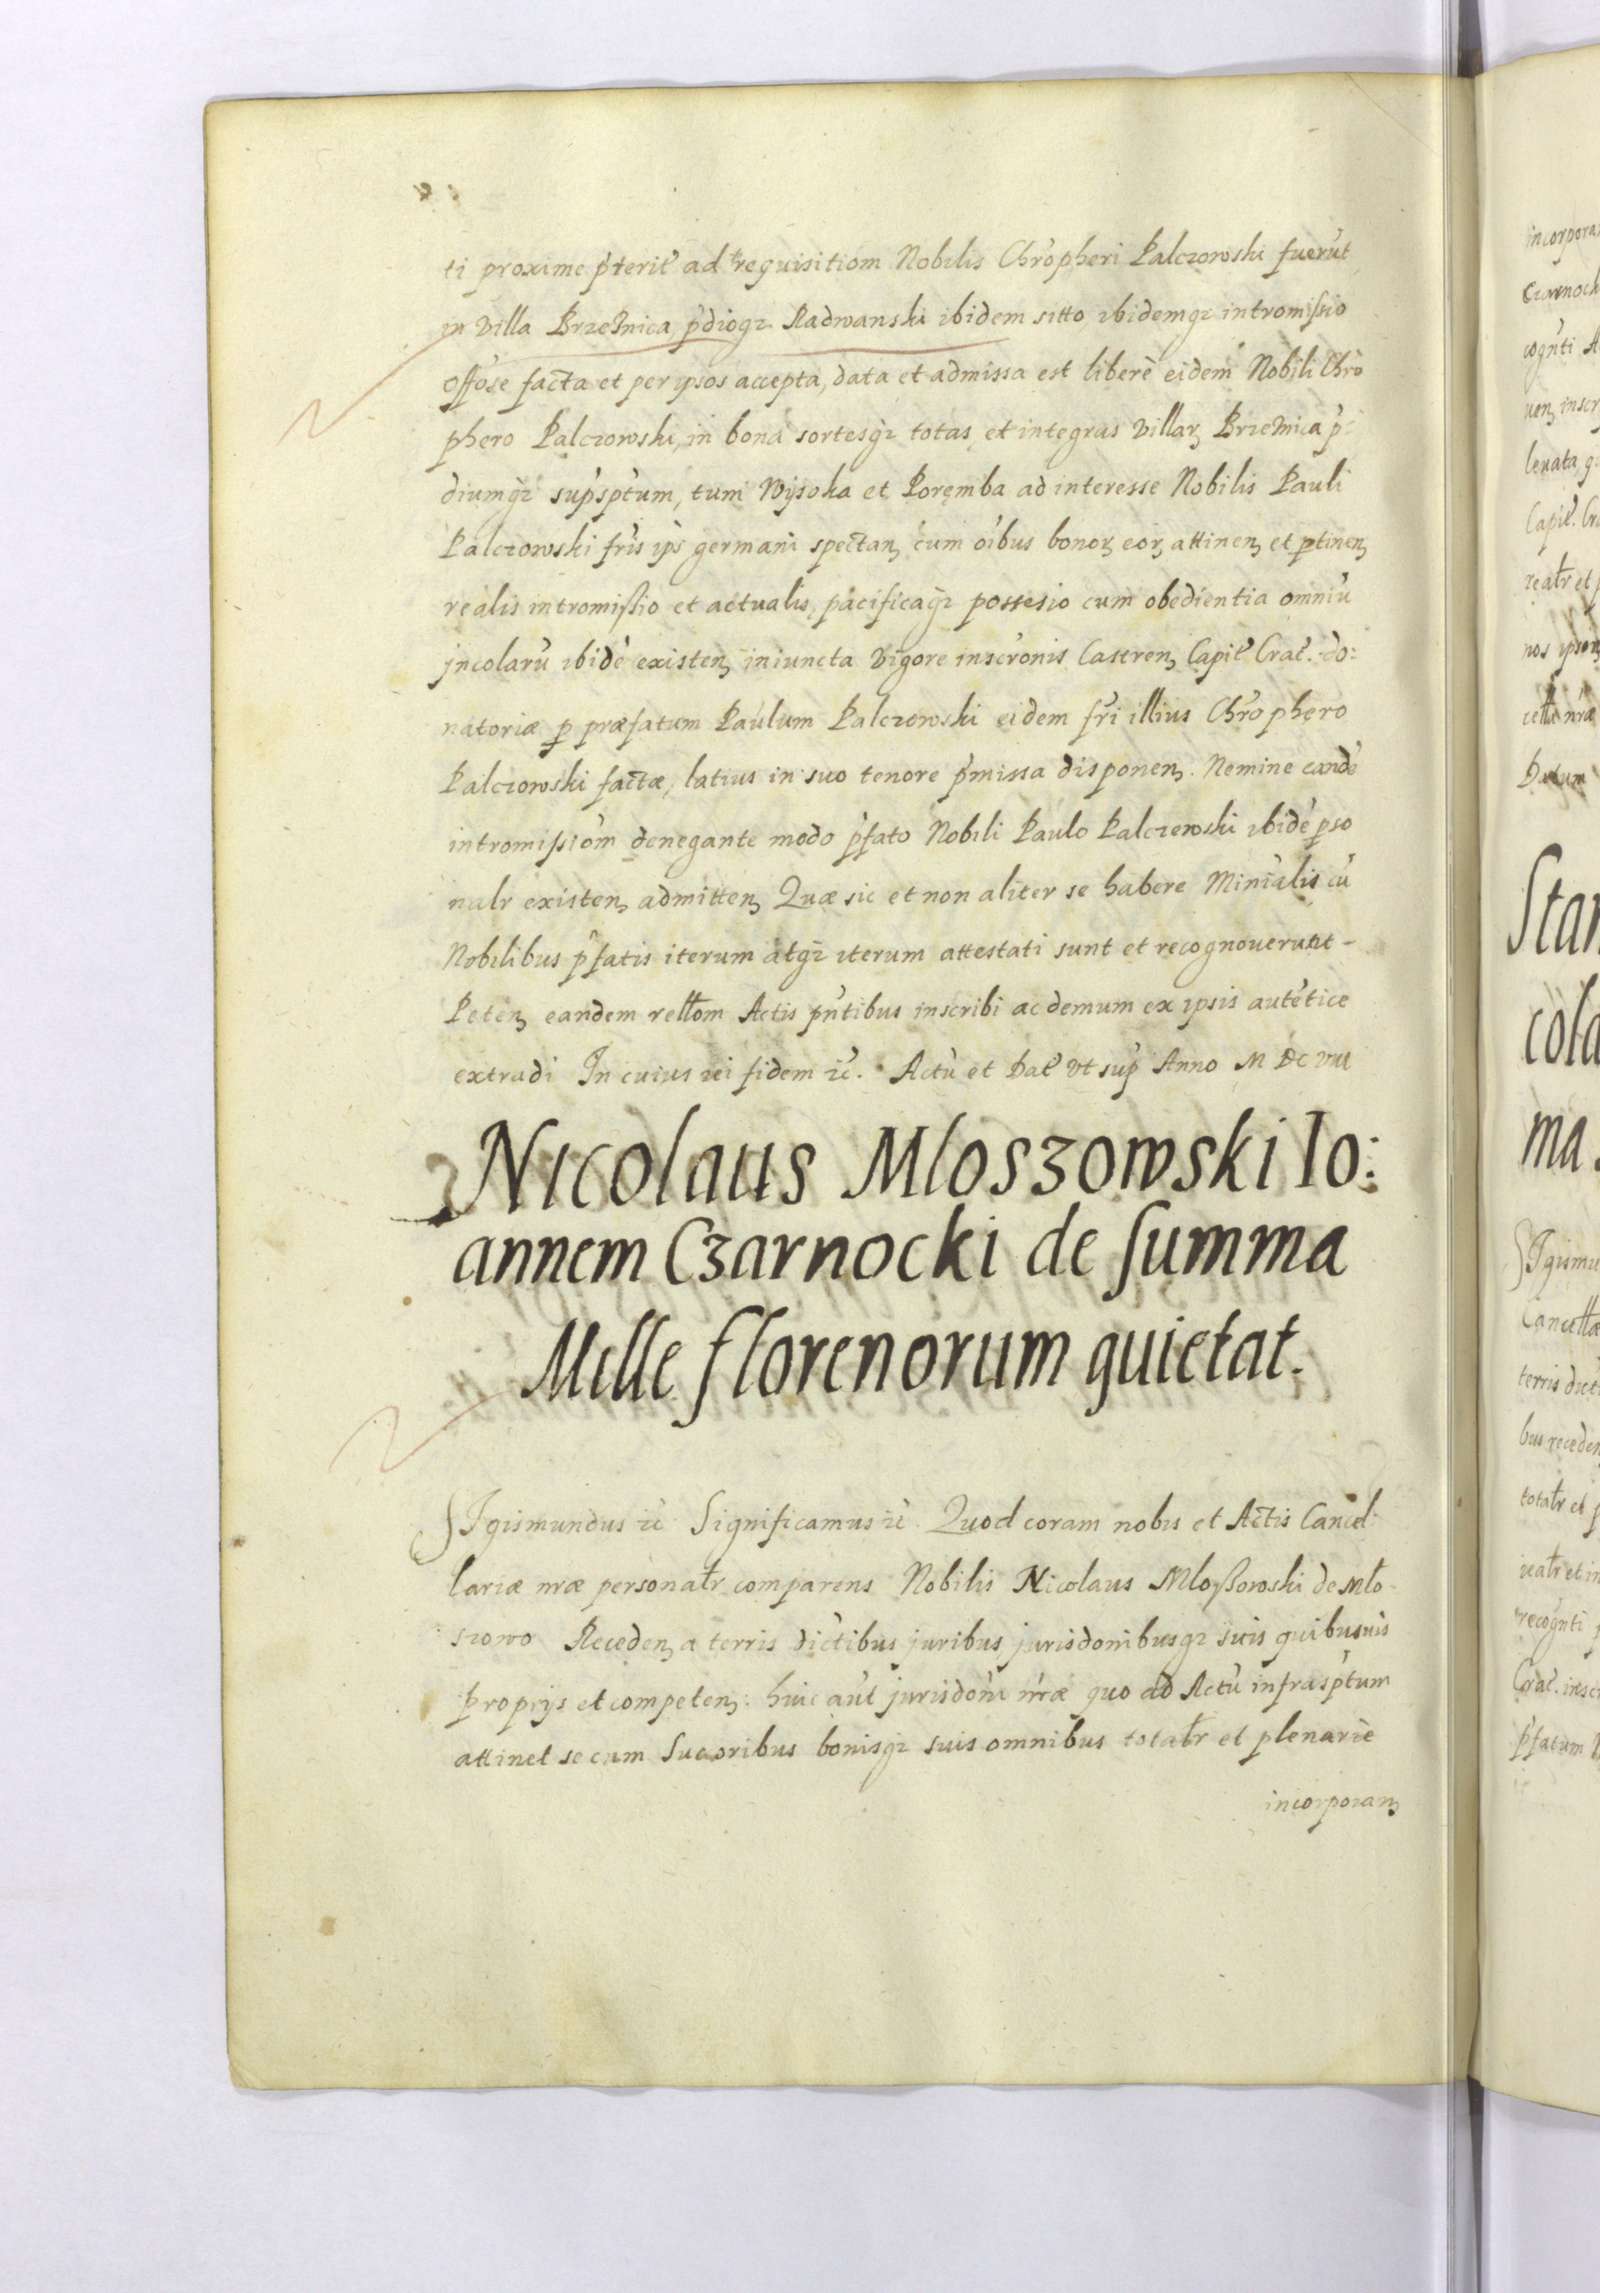 ti proxime p̃terit̃ ad requisitiom Nobilis Chrõpheri Palczowski fuerũt
in villa Brzeźnica p̃diogꝫ Radwanski ibidem sitto, ibidemgꝫ intromissio
offõse facta et per ipsos accepta, data et admissa est liberè eidem Nobili Chrõ
phero Palczowski, in bona sortesgꝫ totas et integras villarꝫ Brzeźnica p̃-
diumgꝫ sup̃sp̃tum, tum Wysoka et Poręmba ad interesse Nobilis Pauli
Palczowski frĩs ip̃s germani spectanꝫ cum oĩbus bonorꝫ eorꝫ attinenꝫ et ꝑtinenꝫ
realis intromißio et actualis, pacificagꝫ possesio cum obedientia omniũ
jncolarũ ibidẽ existenꝫ iniuncta vigore inscrõnis Castrenꝫ Capit̃ Crac̃. do:
natoriæ ꝑ præfatum Paulum Palczowski eidem frĩ illius Chrõphero
Palczowski factæ, latius in suo tenore p̃missa disponenꝫ. Nemine eandẽ
intromissiõm denegante modo p̃fato Nobili Paulo Palczowski ibidẽ ꝑso
nalr existenꝫ admittenꝫ Quæ sic et non aliter se habere Minĩalis cũ
Nobilibus p̃fatis iterum atgꝫ iterum attestati sunt et recognouerunt -
Petenꝫ eandem rełłom Actis pñtibus inscribi ac demum ex ipsis autẽtice
extradi In cuius rei fidem ꝛc̃. Actũ et Dat̃ vt sup̃ Anno M DC VIII
Nicolaus Mloszowski Io:
annem Czarnocki de summa
Mille florenorum quietat.
SIgismundus ꝛc̃ Significamus ꝛc̃. Quod coram nobis et Actis Cancel:
lariæ nræ personałr comparens Nobilis Nicolaus Mloßowski de Mło-
szowo Recedenꝫ a terris dictibus juribus jurisdonibusgꝫ suis quibusuis
proprijs et competenꝫ: huic aũt jurisdõni nr̃æ quo ad Actũ infrasp̃tum
attinet se cum Sucoribus bonisgꝫ suis omnibus totałr et plenariè
incorporanꝫ